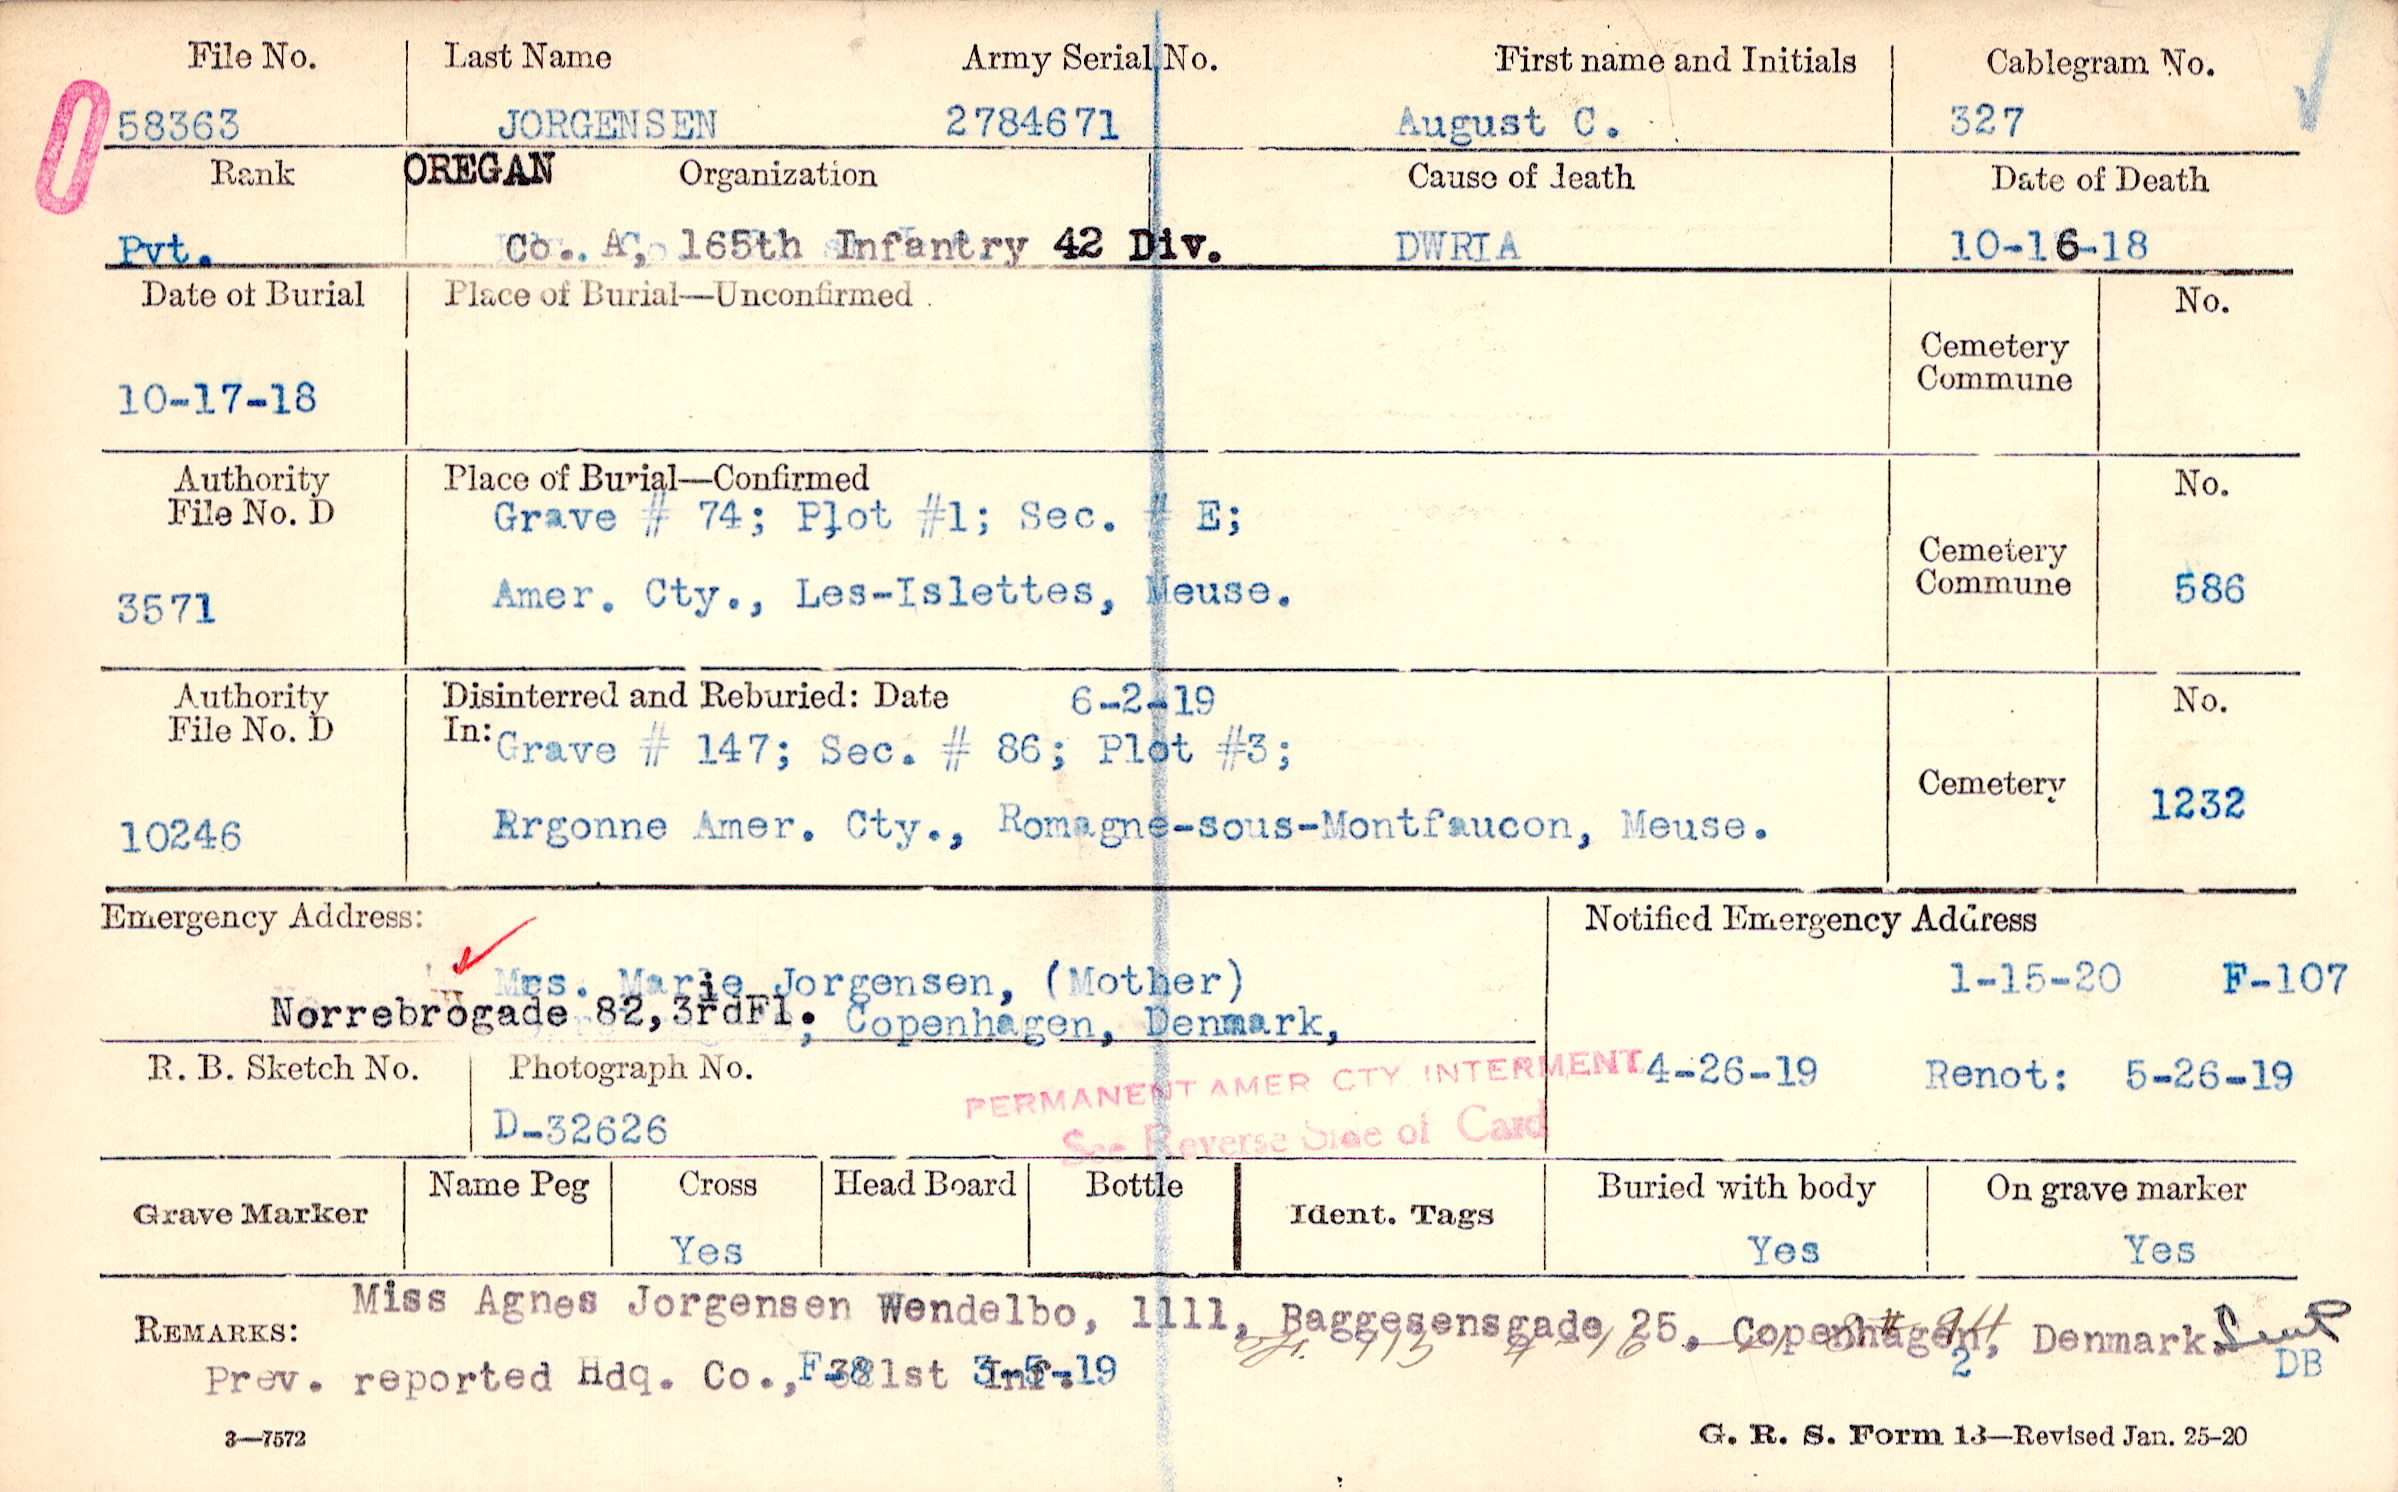 File No. Last Name Army Serial No. First name and Initials Cablegram No.
58363 JORGENSEN 2784671 August C. 327
Rank OREGAN Organization Cause of death Date of Death
Pvt. Co. A, 165th Infantry 42 Div. DWRIA 10-16-18
Date of Burial Place of Burial—Unconfirmed No.
Cemetery
Commune
10-17-18
Authority Place of Burial—Confirmed No.
File No. D Grave # 74; Plot #1; Sec. # E;
Cemetery
Commune
3571 Amer. Cty., Les-Islettes, Meuse. 586
Authority Disinterred and Reburied: Date 6-2-19 No.
File No. D In: Grave # 147; Sec. # 86; Plot #3;
Cemetery
10246 Argonne Amer. Cty., Romagne-sous-Montfaucon, Meuse. 1232
Emergency Address: Notified Emergency Address
Mrs. Marie Jorgensen, (Mother) 1-15-20 F-107
Norrebrogade 82, 3rdFl. Copenhagen, Denmark,
R. B. Sketch No. Photograph No. 4-26-19 Renot: 5-26-19
D-32626
PERMANENT AMER CTY INTERMENT
See Reverse Side of Card
Grave Marker Name Peg Cross Head Board Bottle Ident. Tags Buried with body On grave marker
Yes Yes Yes
Miss Agnes Jorgensen Wendelbo, 1111, Baggesensgade 25, Copenhagen, Denmark. Sent
REMARKS:
Prev. reported Hdq. Co., F-38 Inf. 3-5-19 2 DB
3—7572 G. R. S. Form 13—Revised Jan. 25-20